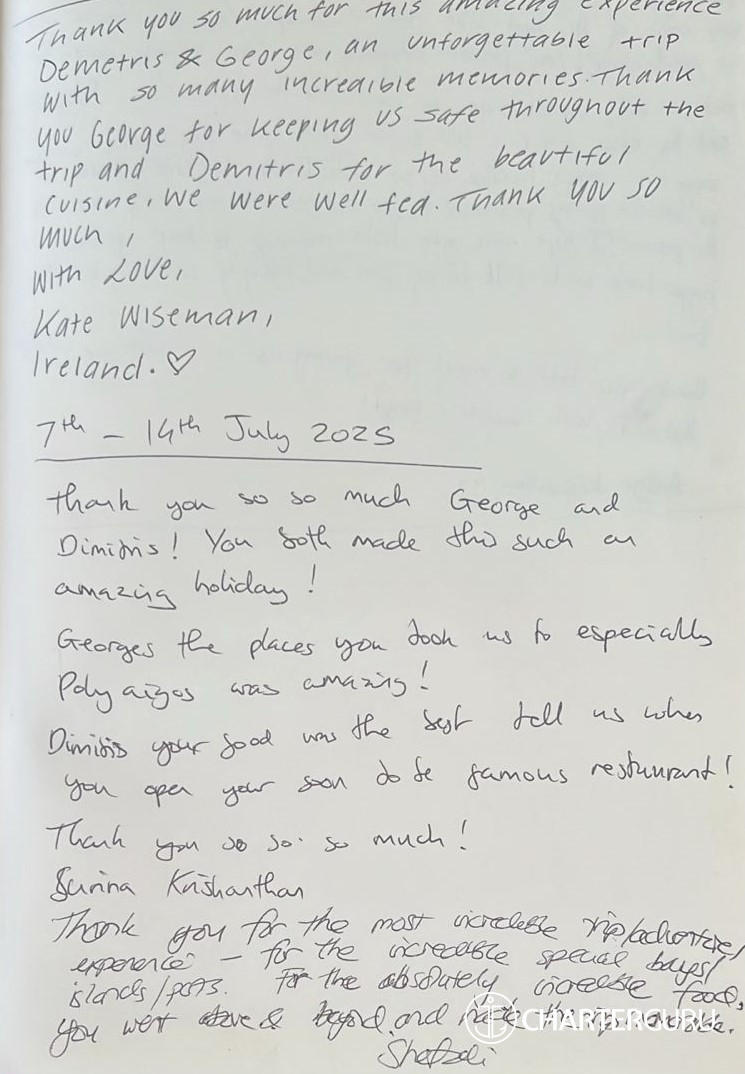 Thank you so much for this amazing experience
Demetris & George, an unforgettable trip
with so many incredible memories. Thank
you George for keeping us safe throughout the
trip and Demitris for the beautiful
cuisine, We were well fed. Thank you so
much,
With Love,
Kate Wiseman,
Ireland. ♡
7th - 14th July 2025
Thank you so so much George and
Dimitris! You both made this such an
amazing holiday!
Georges the places you took us to especially
Polyaigos was amazing!
Dimitris your food was the best tell us when
you open your soon to be famous restuurant!
Thank you so so so much!
Krishanthan
Thank you for the most incredible trip/adventure/
experience - for the incredible special bays/
islands/ports. For the absolutely incredible food,
you went above & beyond and made the trip
CHARTERGURU